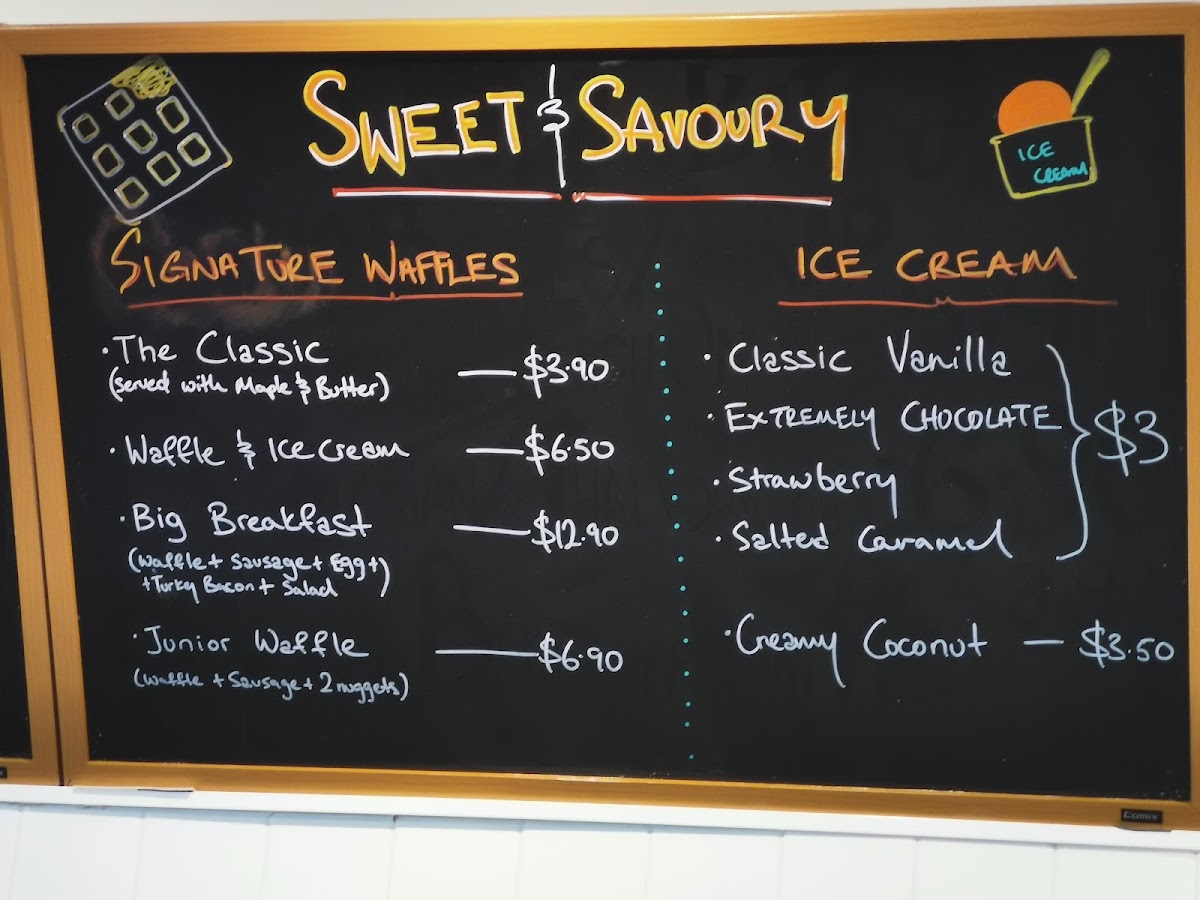 SWEET & SAVOURY
ICE
CREAM
SIGNATURE WAFFLES
· The Classic — $3.90
(served with Maple & Butter)
· Waffle & Ice Cream — $6.50
· Big Breakfast — $12.90
(Waffle + Sausage + Egg +)
+ Turky Bacon + Salad
· Junior Waffle — $6.90
(Waffle + Sausage + 2 nuggets)
ICE CREAM
· Classic Vanilla
· EXTREMELY CHOCOLATE
· Strawberry
· Salted Caramel
$3
· Creamy Coconut — $3.50
Comix